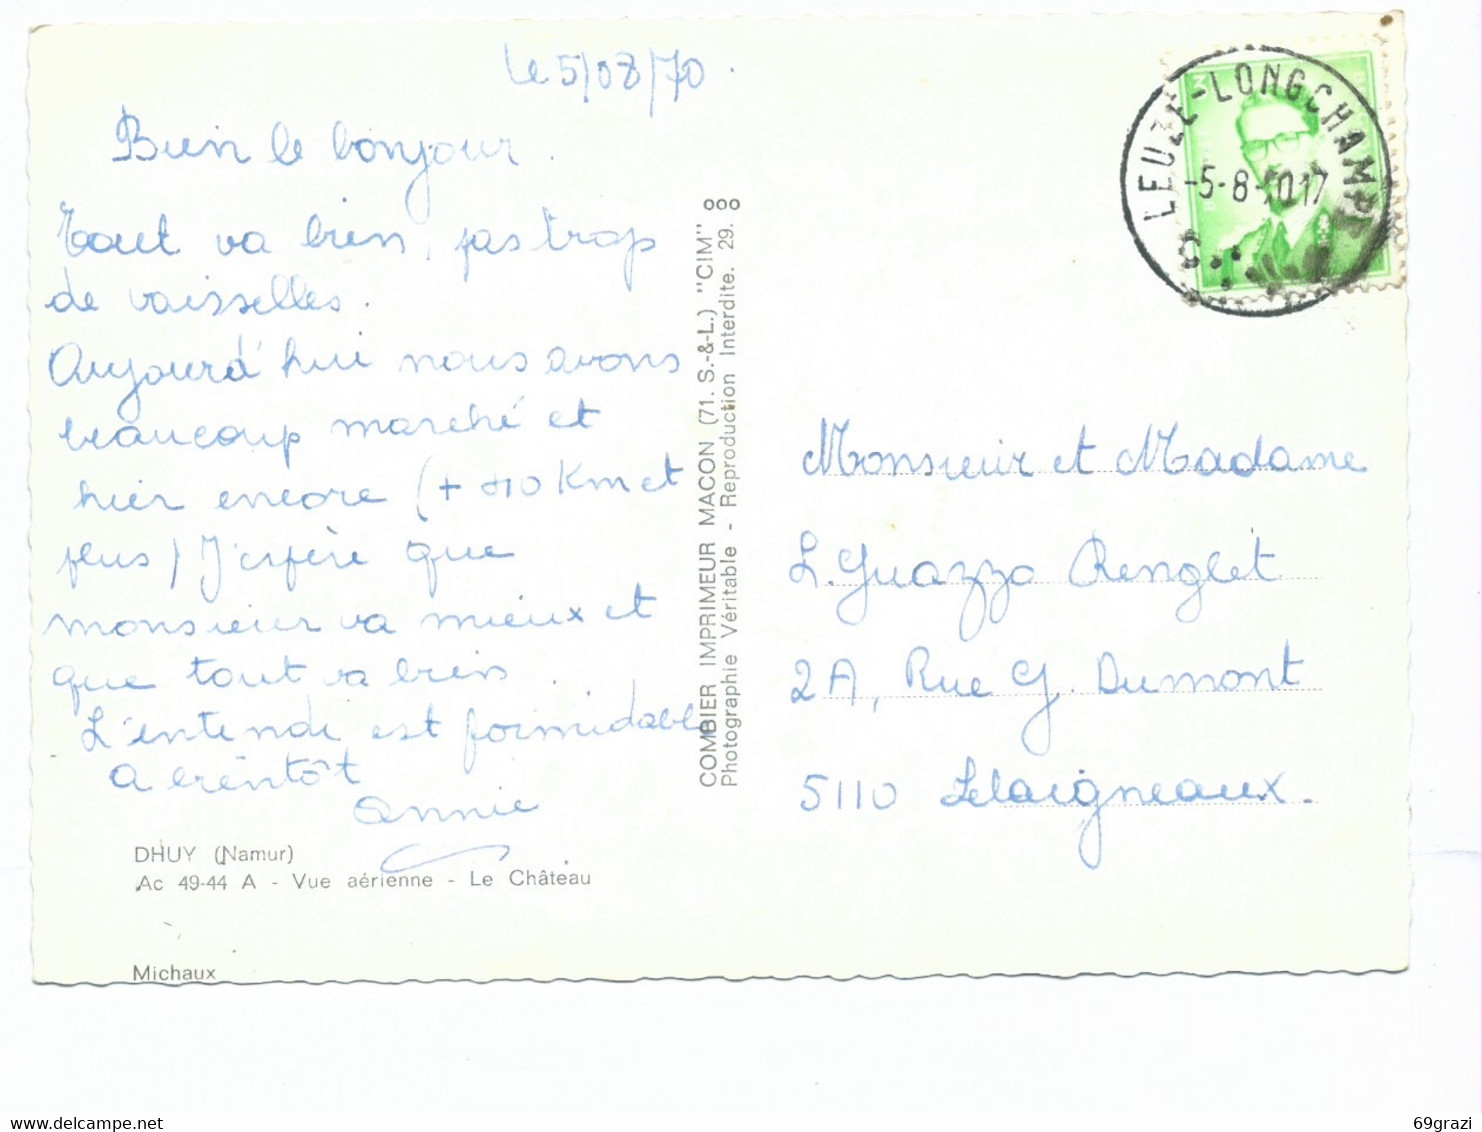 Le 5/08/70.
Bien le bonjour.
Tout va bien, pas trop
de vaisselles.
Aujourd'hui nous avons
beaucoup marché et
hier encore (+ 10 Km et
plus) J'espère que
monsieur va mieux et
que tout va bien.
L'entende est formidable
A bientôt
Annie
DHUY (Namur)
Ac 49-44 A - Vue aérienne - Le Château
Michaux
COMBIER IMPRIMEUR MACON (71. S.-&-L.) "CIM"
Photographie Véritable - Reproduction Interdite. 29. 8
LEUZE-LONGCHAMPS
-5-8-7017
C
Monsieur et Madame
L. Guazzo Renglet
2A, Rue G. Dumont
5110 Lelaigneaux.
69grazi